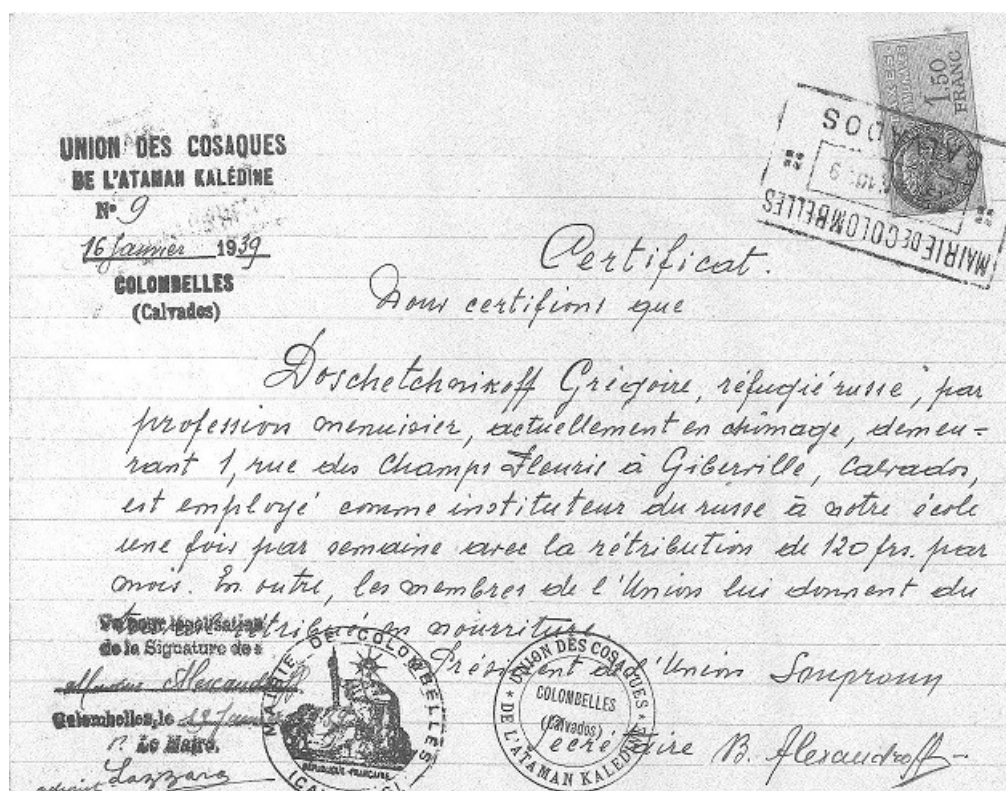 UNION DES COSAQUES
DE L'ATAMAN KALÉDINE
N° 9
16 Janvier 1939
COLOMBELLES
(Calvados)
1.50
FRANC
MAIRIE DE COLOMBELLES
Certificat.
Nous certifions que
Doschetchnikoff Grégoire, réfugié russe, par
profession menuisier, actuellement en chômage, demeu-
rant 1, rue des Champs Fleuris à Giberville, Calvados,
est employé comme instituteur du russe à notre école
une fois par semaine avec la rétribution de 120 frs. par
mois. En outre, les membres de l'Union lui donnent du
rétribué en nourriture.
Président de l'Union Souproun
Secrétaire B. Alexandroff
Vu pour légalisation
de la Signature de
Alexandroff
Colombelles, le Janvier
P. Le Maire,
adjoint
MAIRIE DE COLOMBELLES
RÉPUBLIQUE FRANÇAISE
UNION DES COSAQUES
DE L'ATAMAN KALEDINE
COLOMBELLES
(Calvados)